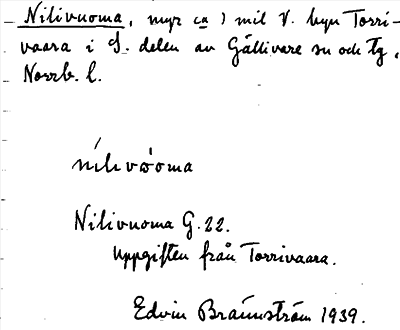 Nilivuoma, myr ca 1 mil V. byn Torri-
vaara i S. delen av Gällivare sn och tg,
Norrb. l.
nilivuoma
Nilivuoma G. 22.
Uppgiften från Torrivaara.
Edvin Brännström 1939.